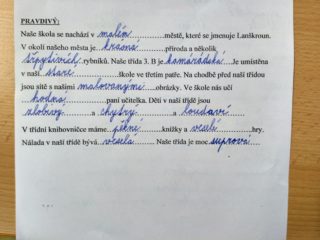 PRAVDIVÝ:
Naše škola se nachází v malém městě, které se jmenuje Lanškroun.
V okolí našeho města je krásná příroda a několik
třpytivích rybníků. Naše třída 3. B je kamarádská. Je umístěna
v naší staré škole ve třetím patře. Na chodbě před naší třídou
jsou sítě s našimi malovanými obrázky. Ve škole nás učí
hodná paní učitelka. Děti v naší třídě jsou
zlobivý a chytrý a loudaví
V třídní knihovničce máme pěkné knížky a veselí hry.
Nálada v naší třídě bývá veselá. Naše třída je moc suprová.